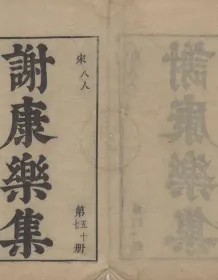 宋 八人
謝康樂集
第五十七册